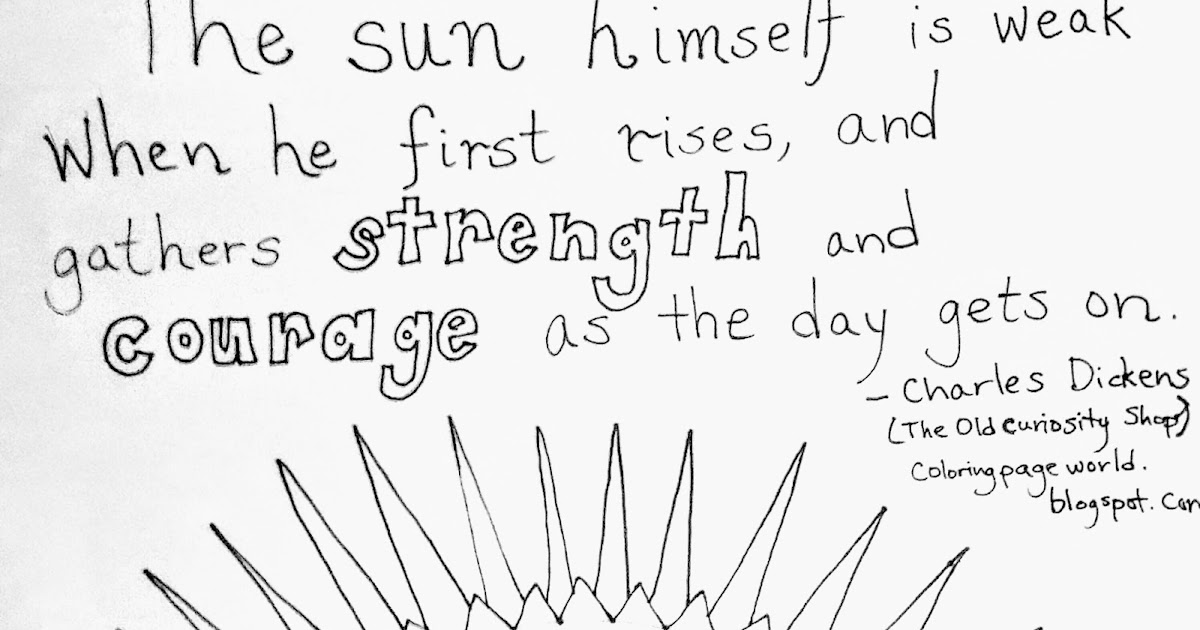 The sun himself is weak
When he first rises, and
gathers strength and
courage as the day gets on.
- Charles Dickens
(The Old Curiosity Shop)
Coloringpageworld.
blogspot.com